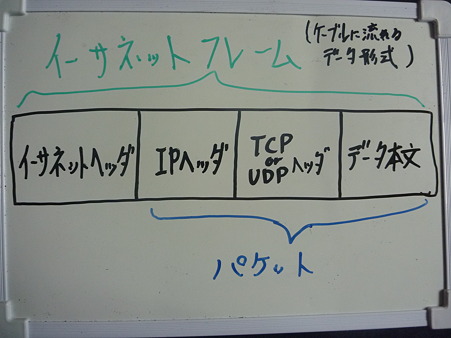 イーサネットフレーム
(ケーブルに流れる
データ形式)
イーサネットヘッダ
IPヘッダ
TCP
or
UDP
ヘッダ
データ本文
パケット